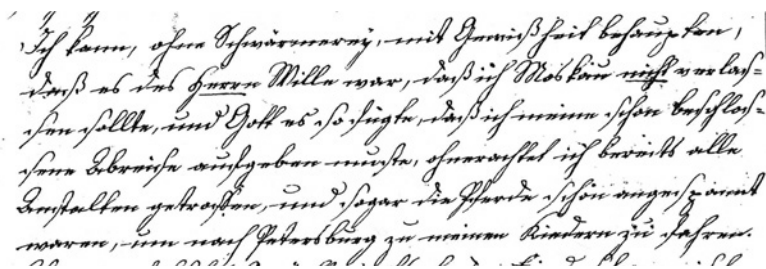 Ich kann, ohne Schwärmerey, mit Gewißheit behaupten,
daß es des Herrn Wille war, daß ich Moskau nicht verlas-
sen sollte, und Gott es so fügte, daß ich meine schon beschlos-
sene Abreise aufgeben muste, ohnerachtet ich bereits alle
Anstalten getroffen, und sogar die Pferde schon angespannt
waren, um nach Petersburg zu meinen Kindern zu fahren.